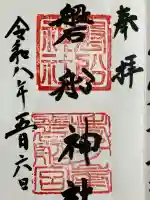 奉拝
磐船神社
令和八年五月六日